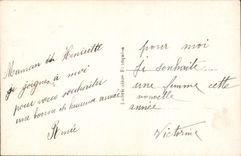 Maman et Henriette
se joignent à moi
pour vous souhaiter
une bonne et heureuse année
Aimée
pour moi
je souhaite...
une femme cette
nouvelle
année
Victorine